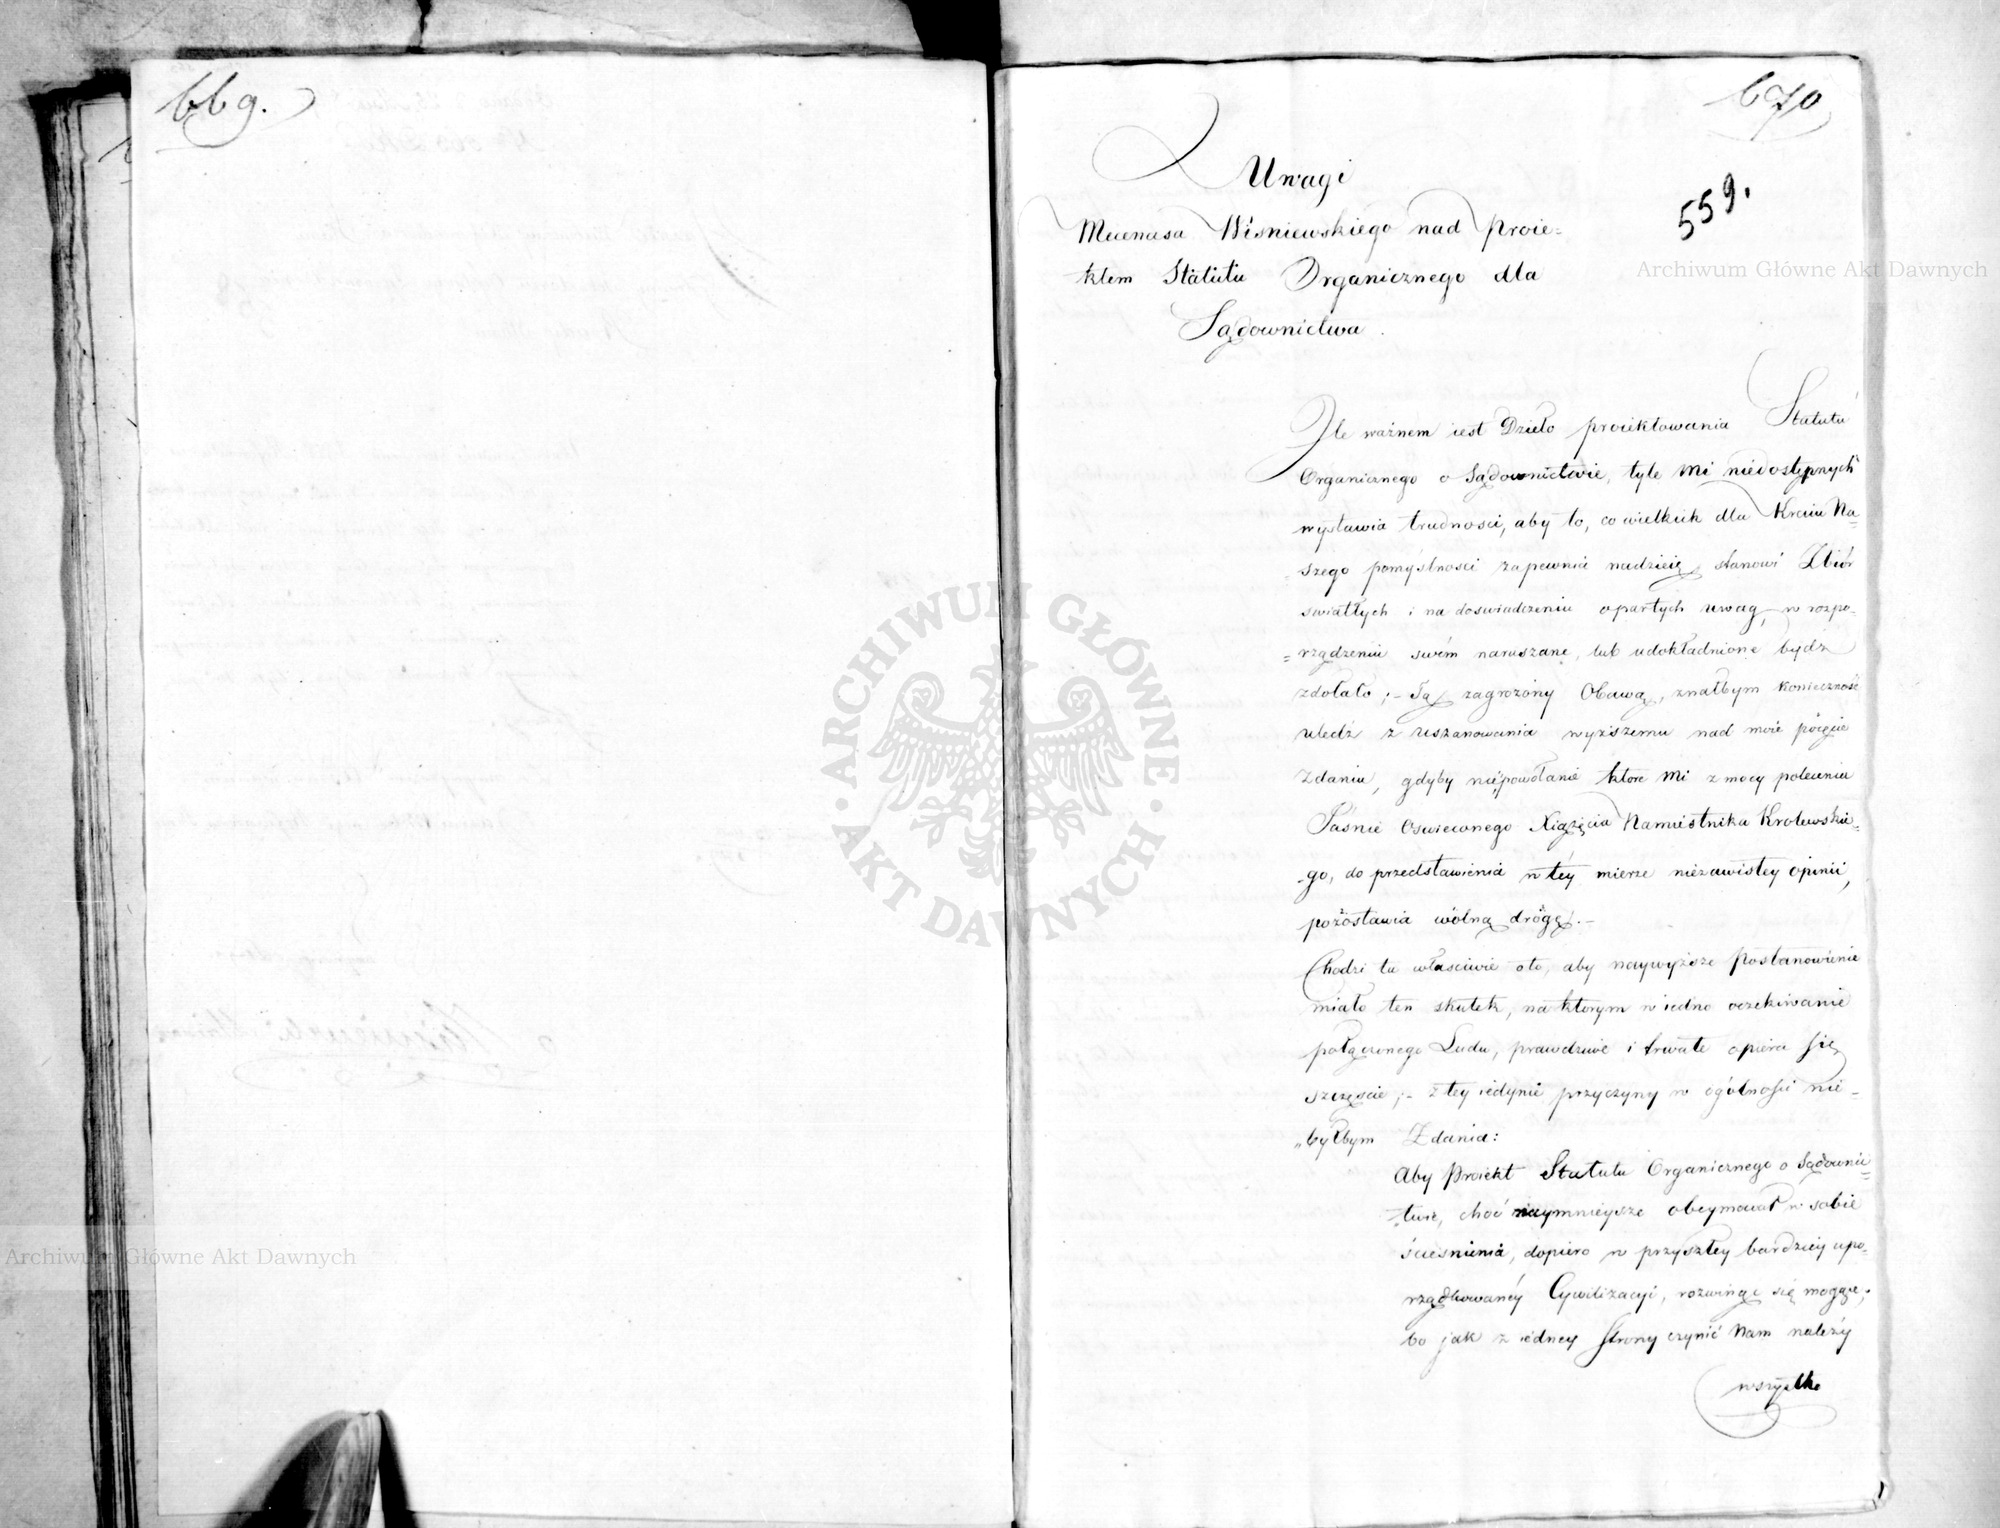 669.
670
559.
Uwagi
Mecenasa Wiśniewskiego nad Proie=
ktem Statutu Organicznego dla
Sądownictwa.
Ile ważnem iest Dzieło proiektowania Statutu
Organicznego o Sądownictwie, tyle mi niedostępnych
wystawia trudności, aby to, co wielkich dla Kraiu Na=
=szego pomyślności zapewnia nadzieię, stanowi Zbiór
światłych i na doświadczeniu opartych uwag, w rozpo=
=rządzeniu swém naruszane, lub udokładnione bydź
zdołało; – Tą zagrożony Obawą, znałbym konieczność
uledz z uszanowania wyższemu nad moie poięcie
Zdaniu, gdyby nie powołanie które mi z mocy polecenia
Jaśnie Oświeconego Xiążęcia Namiestnika Krolewskie=
=go, do przedstawienia w téy mierze niezawisłey opinii,
pozostawia wolną drogę. –
Chodzi tu właściwie oto, aby naywyższe Postanowienie
miało ten skutek, na ktorym w iedno oczekiwanie
połączonego Ludu, prawdziwe i trwałe opiera się
szczęscie; – z tey iedynie przyczyny w ogólności nie=
„byłbym Zdania:
Aby Proiekt Statutu Organicznego o Sądownic=
=twie, choć naymnieysze obeymował w sobie
ścieśnienia, dopiero w przyszłey bardziey upo=
rządkowanéy Cywilizacyi, rozwinąć się mogące;
bo jak z iedney Strony czynić Nam należy
wszystko
Archiwum Główne Akt Dawnych
Archiwum Główne Akt Dawnych
ARCHIWUM GŁÓWNE · AKT DAWNYCH ·